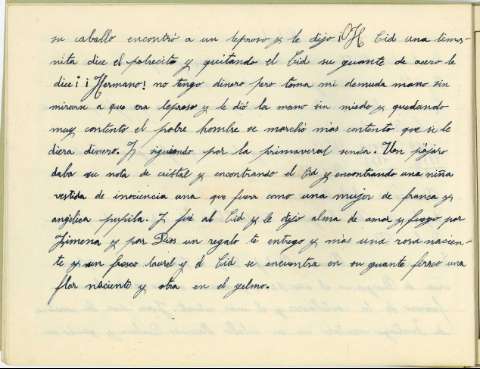 su caballo encontró a un leproso y le dijo ¡OH Cid una limos-
nita dice el pobrecito y quitando el Cid su guante de acero le
dice! ¡Hermano! no tengo dinero pero toma mi demuda mano sin
mirarse a que era leproso y le dió la mano sin miedo y quedando
muy contento el pobre hombre se marchó mas contento que si le
diera dinero. Y siguiendo por la primaveral senda. Un pájaro
daba su nota de cristal y encontrando el Cid y encontrando una niña
vestida de inocencia una que fuera como una mujer de franca y
angélica pupila. Y fué al Cid y le dijo alma de amor y fuego por
Jimena y por Dios un regalo te entrego y mas una rosa nacien-
te y un fresco laurel y el Cid se encuentra en su guante férreo una
flor naciente y otra en el yelmo.